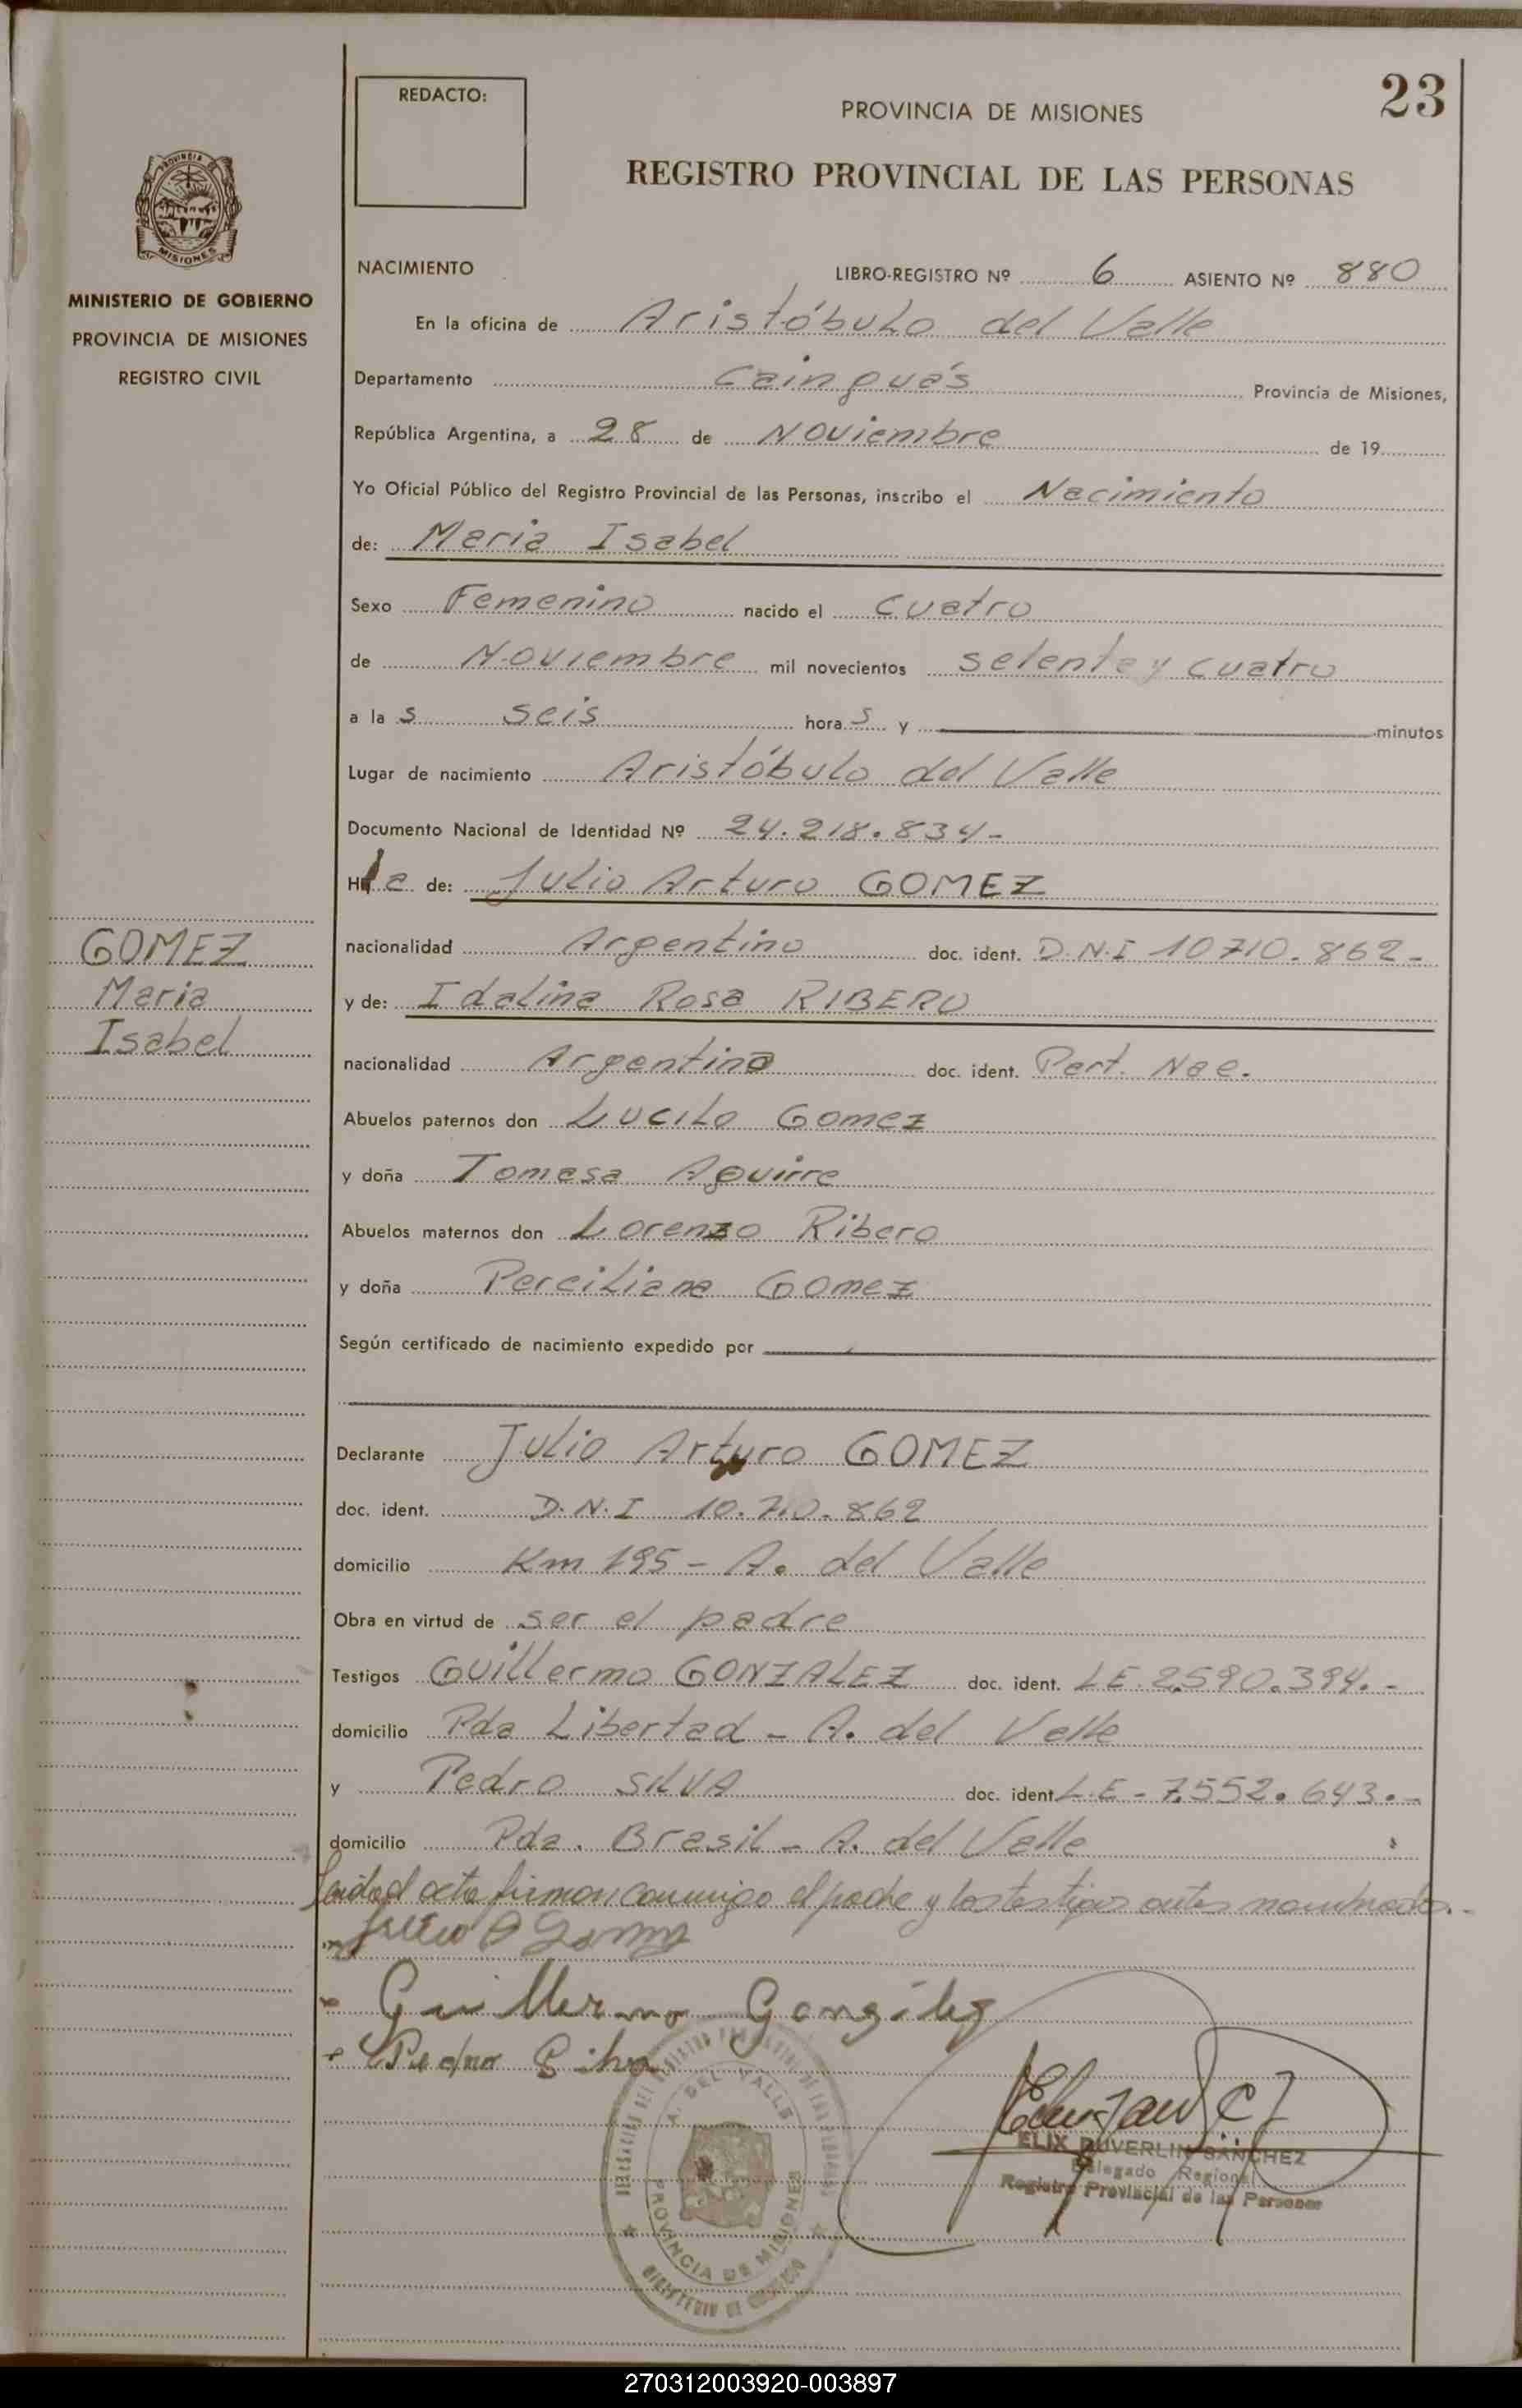 REDACTO:
PROVINCIA DE MISIONES
23
REGISTRO PROVINCIAL DE LAS PERSONAS
PROVINCIA DE
MISIONES
MINISTERIO DE GOBIERNO
PROVINCIA DE MISIONES
REGISTRO CIVIL
NACIMIENTO LIBRO-REGISTRO Nº 6 ASIENTO Nº 880
En la oficina de Aristóbulo del Valle
Departamento Cainguás Provincia de Misiones,
República Argentina, a 28 de Noviembre de 19
Yo Oficial Público del Registro Provincial de las Personas, inscribo el Nacimiento
de: Maria Isabel
Sexo Femenino nacido el cuatro
de Noviembre mil novecientos setenta y cuatro
a la s seis hora s y minutos
Lugar de nacimiento Aristóbulo del Valle
Documento Nacional de Identidad Nº 24.218.834-
Hija de: Julio Arturo GOMEZ
nacionalidad Argentino doc. ident. D.N.I 10710.862-
y de: Idalina Rosa RIBERO
nacionalidad Argentina doc. ident. Part. Nac.
GOMEZ
Maria
Isabel
Abuelos paternos don Lucilo Gomez
y doña Tomasa Aguirre
Abuelos maternos don Lorenzo Ribero
y doña Perciliana Gomez
Según certificado de nacimiento expedido por
Declarante Julio Arturo GOMEZ
doc. ident. D.N.I 10.710.862
domicilio Km 195 - A. del Valle
Obra en virtud de ser el padre
Testigos Guillermo GONZALEZ doc. ident. LE. 2.590.394.-
domicilio Pda Libertad - A. del Valle
y Pedro SILVA doc. ident. L.E - 7.552.643.-
domicilio Pda. Brasil - A. del Valle
Leida el acta firman conmigo el padre y los testigos antes nombrados.-
Julio A Gomez
Guillermo González
Pedro Silva
A. DEL VALLE
PROVINCIA DE MISIONES
MINISTERIO DE GOBIERNO
ELIX DUVERLIN SANCHEZ
Delegado Regional
Registro Provincial de las Personas
270312003920-003897